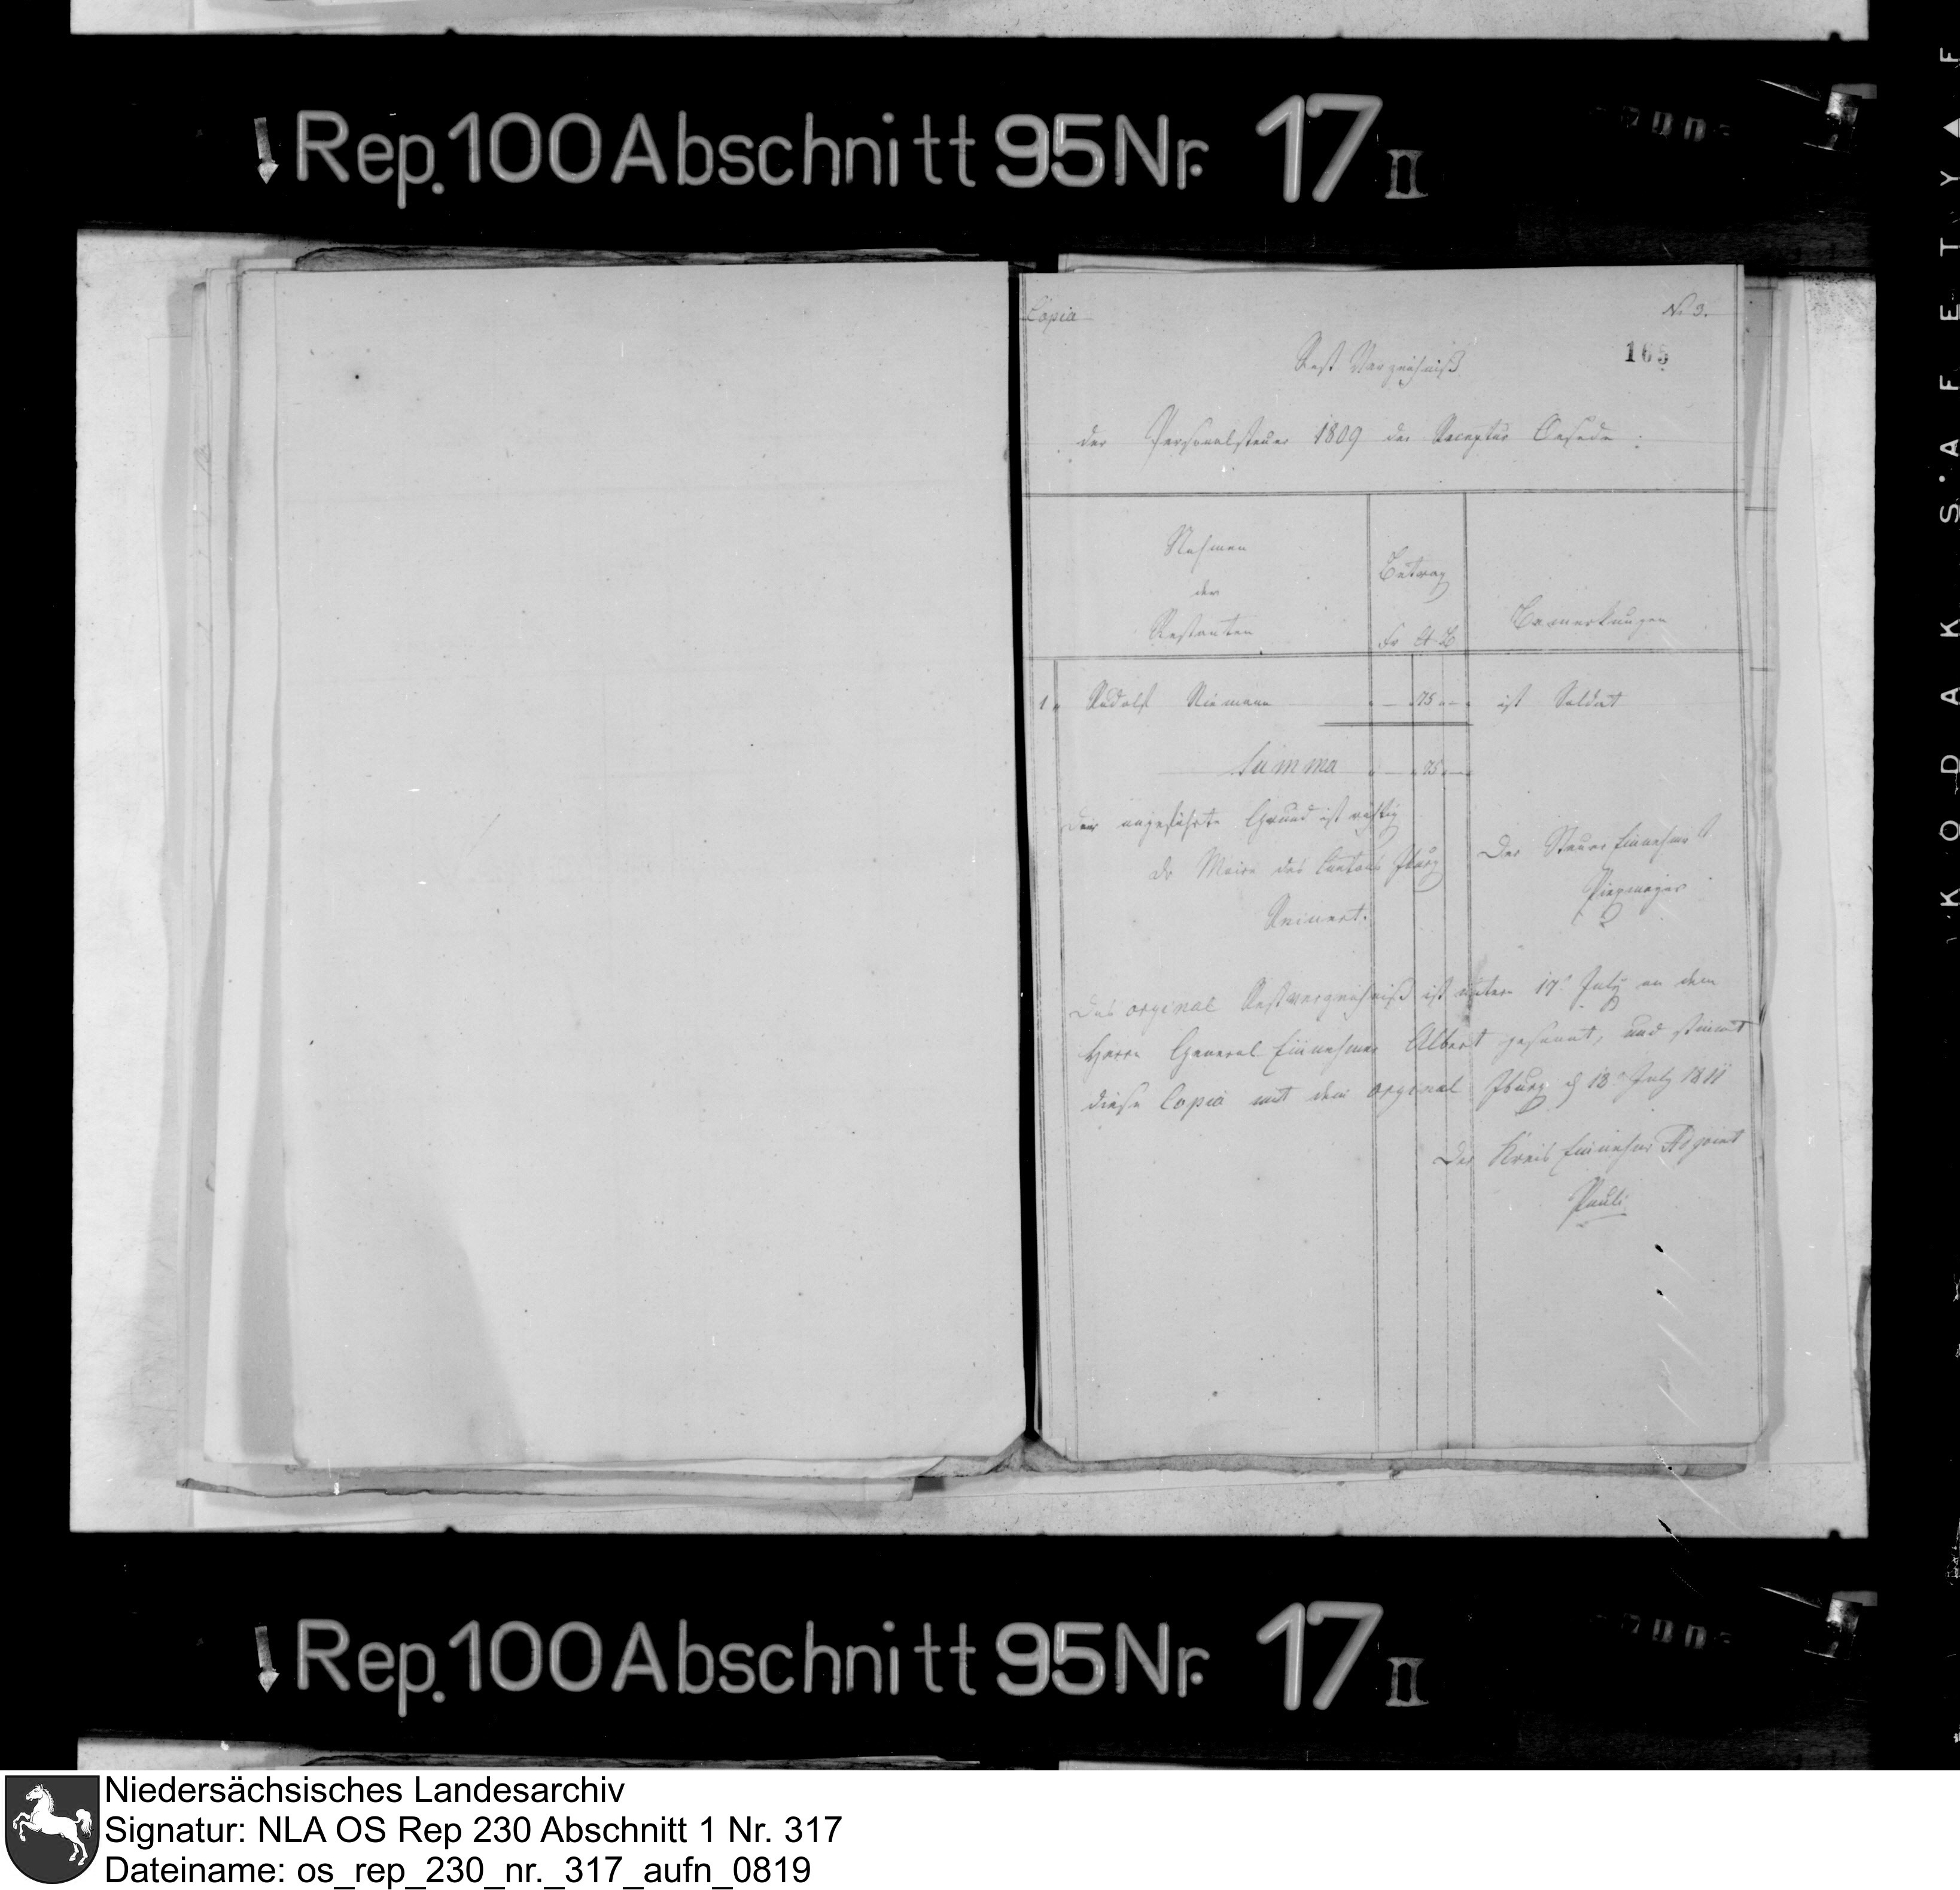 Rep. 100 Abschnitt 95 Nr. 17 II
Copia
No 3.
165
Rest Verzeichniß
der Personalsteuer 1809 der Receptur Oesede
Nahmen
der
Restanten
Betrag
Fr
Bemerkungen
1 Rudolf Niemann 75 ist Soldat
Summa 75
Der angeführte Grund ist richtig
Der Maire des Cantons Iburg
Reinert.
Der Steuer Einnehmer
Piepmeyer
Das orginal Restverzeichniß ist unterm 17 July an dem
Herrn General Einnehmer Albert gesannt, und stimmt
diese Copia mit dem orginal Iburg d 18 July 1811
Der Kreis Einnehmer Adjoint
Pauli
Rep. 100 Abschnitt 95 Nr. 17 II
KODAK SAFETY
Niedersächsisches Landesarchiv
Signatur: NLA OS Rep 230 Abschnitt 1 Nr. 317
Dateiname: os_rep_230_nr._317_aufn_0819